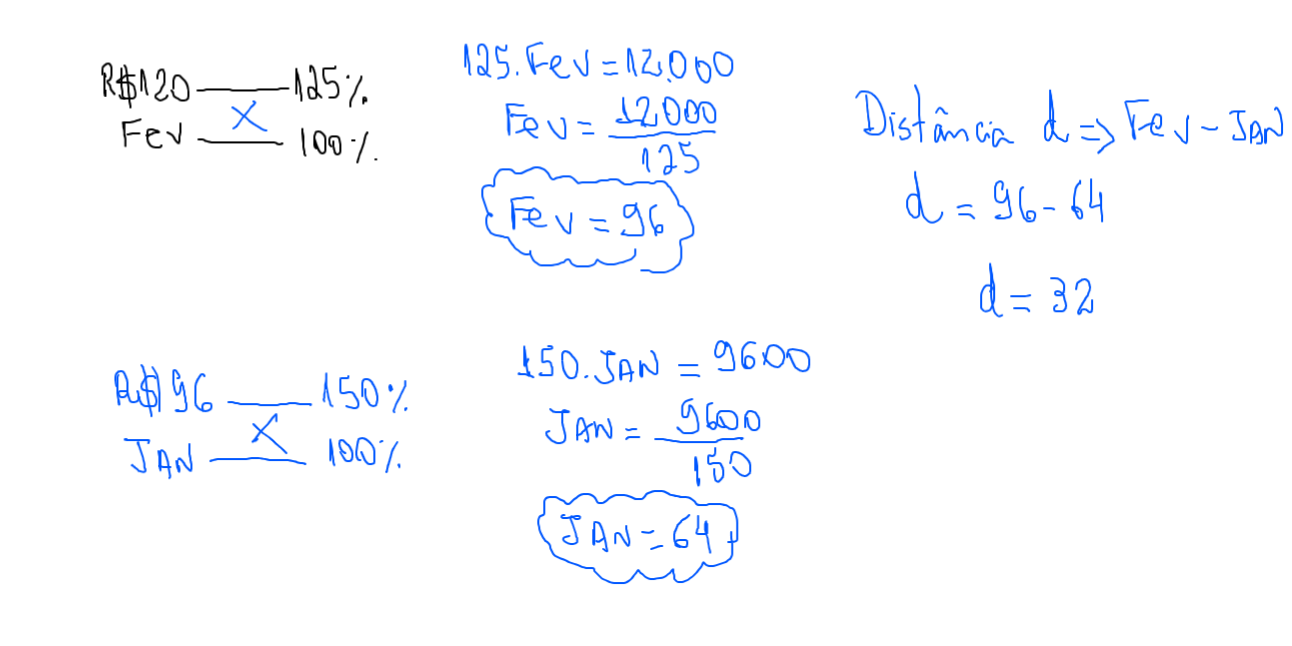 R$120 — 125%
X
Fev — 100%.
125.Fev = 12.000
Fev = 12.000
125
Fev = 96
Distância d => Fev - JAN
d = 96 - 64
d = 32
R$96 — 150%
X
JAN — 100%.
150.JAN = 9600
JAN = 9600
150
JAN = 64